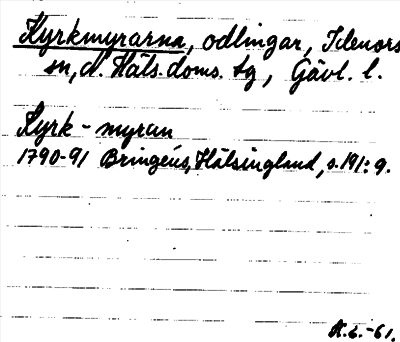 Kyrkmyrarna, odlingar, Idenors
sn, N. Häls. doms. tg, Gävl. l.
Kyrk-myran
1790-91 Bringéus, Hälsingland, s. 191: 9.
K.L.-61.